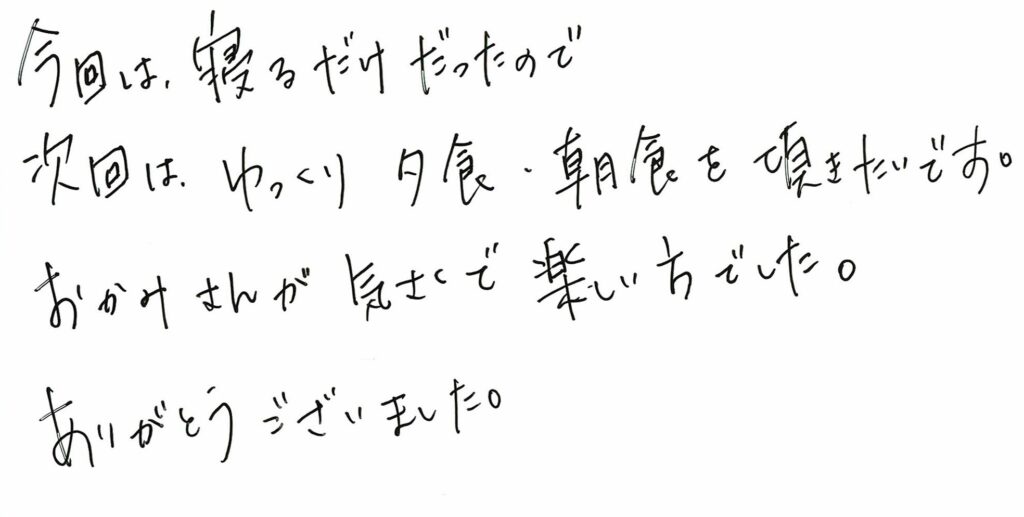 今回は、寝るだけだったので
次回は、ゆっくり夕食・朝食を頂きたいです。
おかみさんが気さくで楽しい方でした。
ありがとうございました。